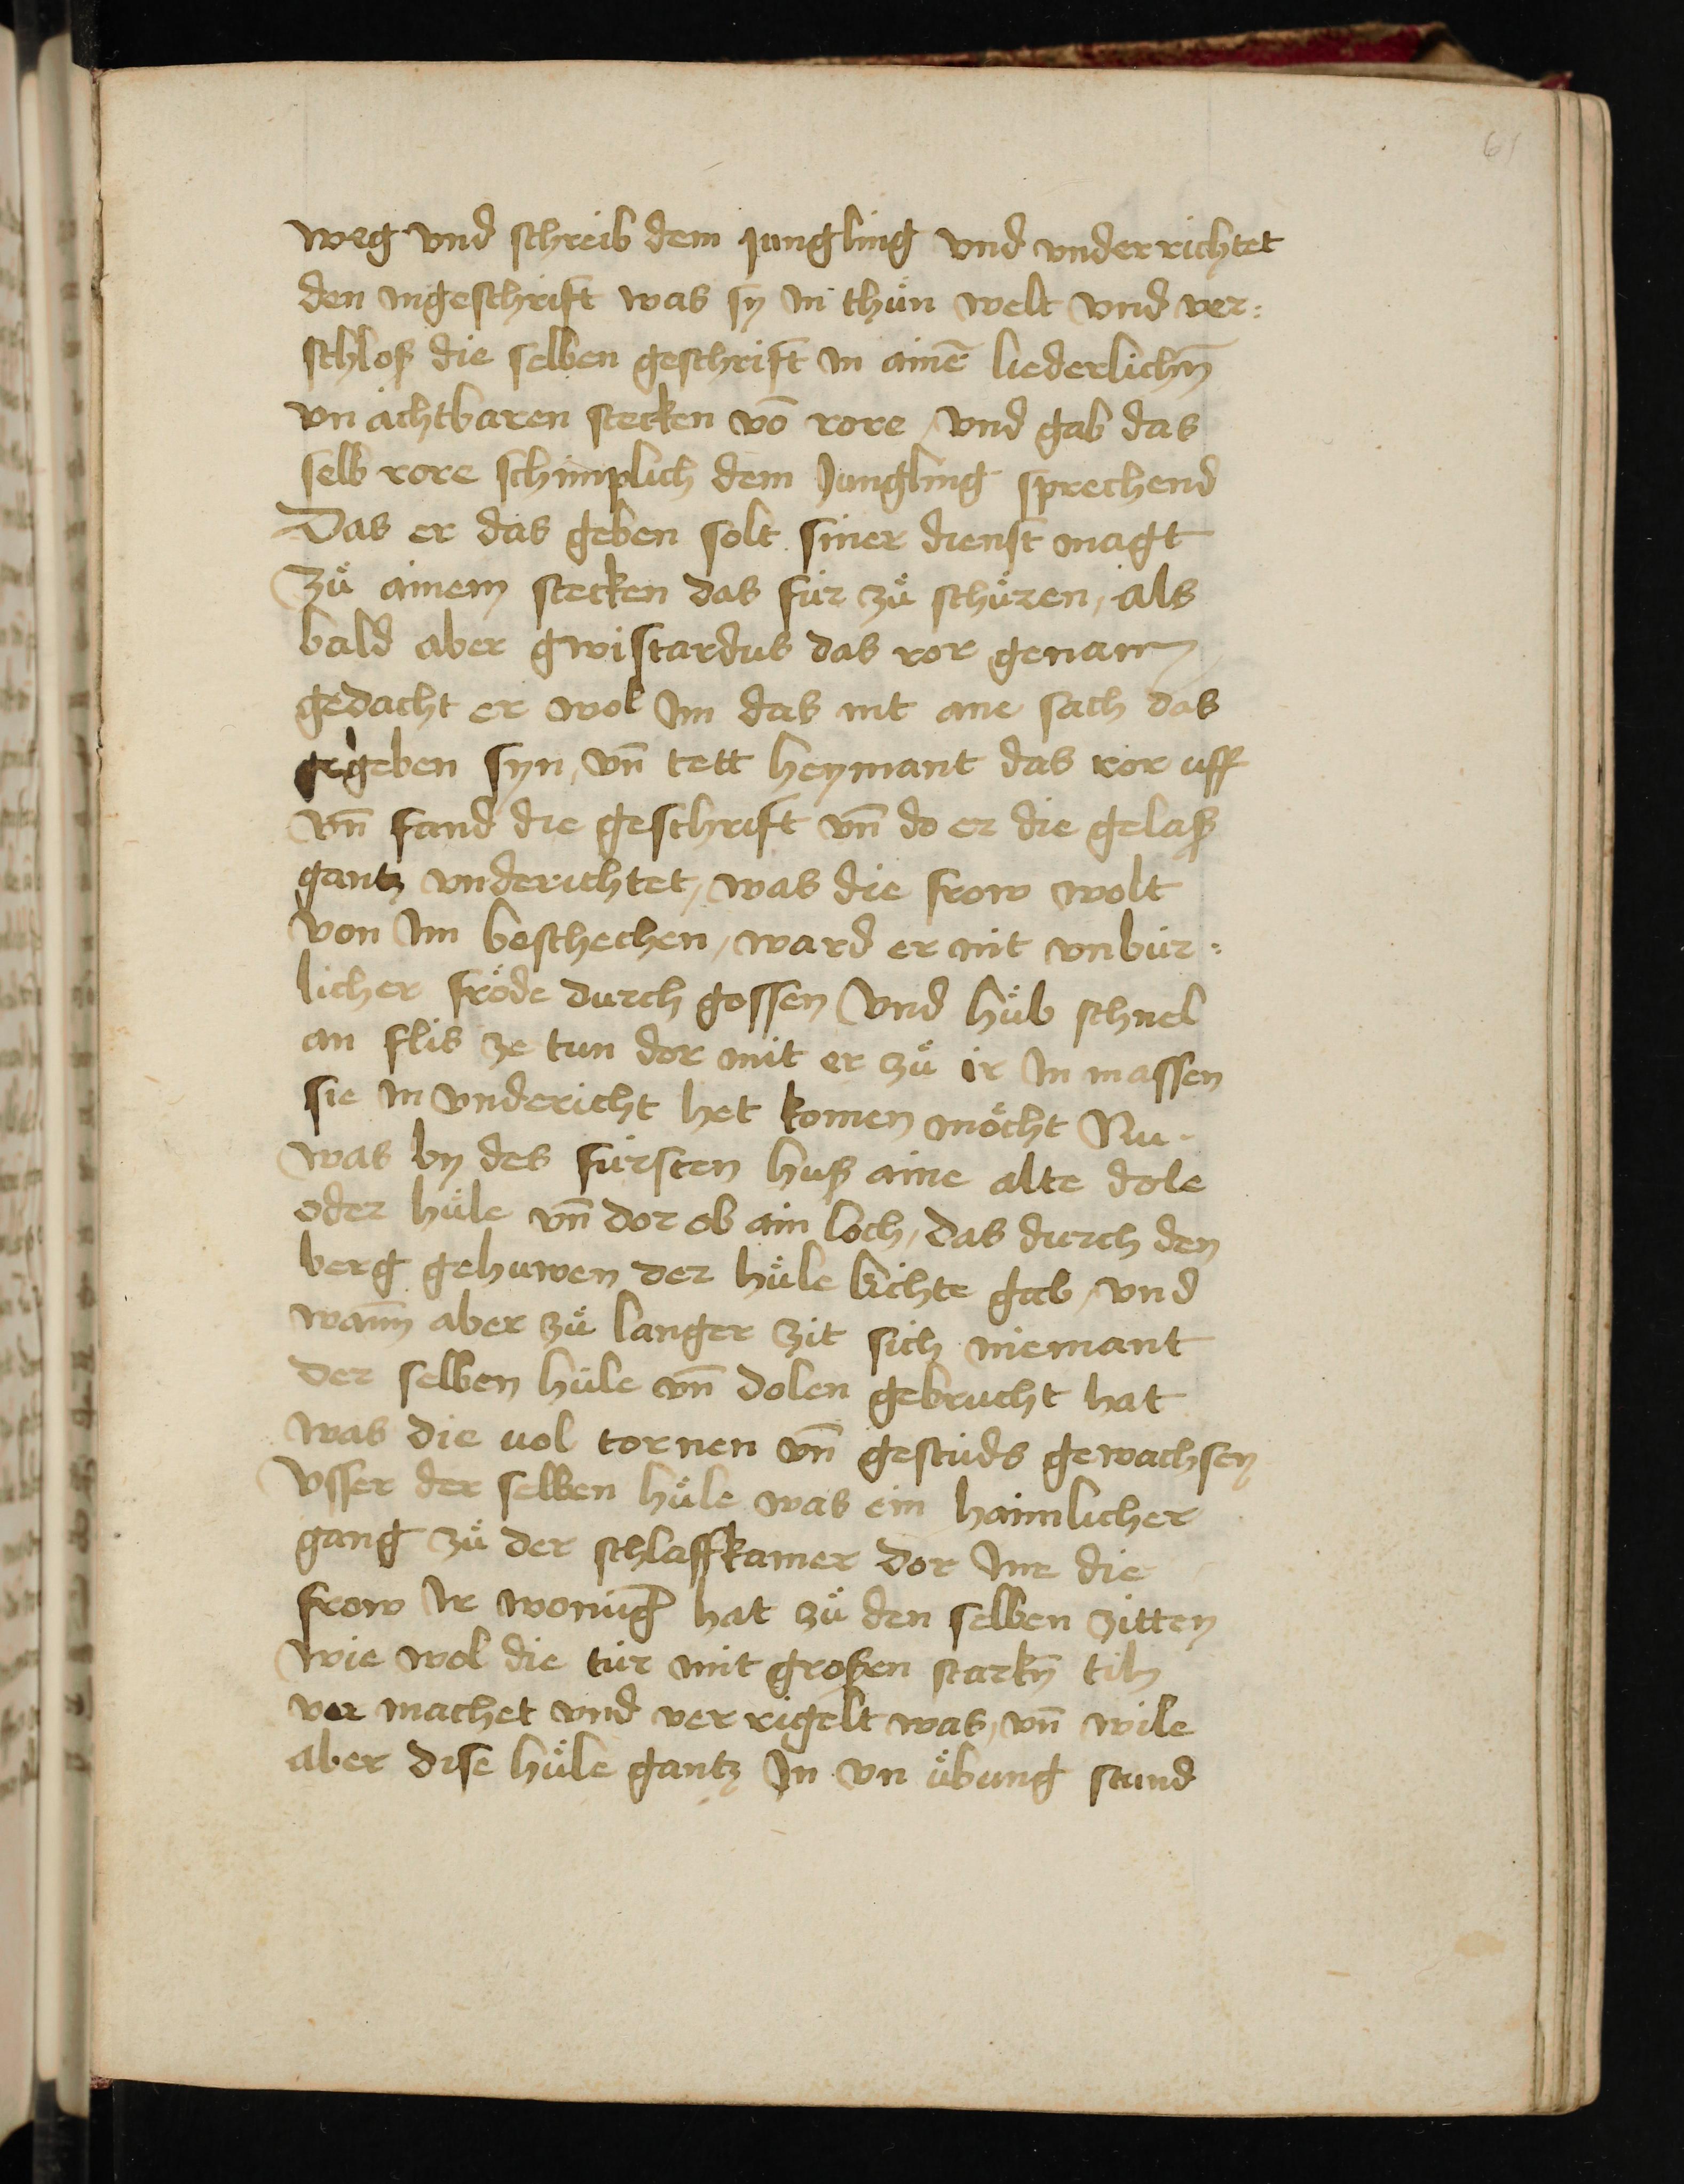 61
weg vnd schreib dem jungling vnd vnderrichtet
den ingeschrift was sy in thün welt vnd ver:
schloß die selben geschrift in ainē liederlichn̄
vn achtbaren stecken vō rore / vnd gab das
selb rore schimplich dem Jungling sprechend
Das er das geben solt siner dienst magt
zů ainem stecken das für zů schüren / als
bald aber gwistardus das ror genam
gedacht er wol im das nit ane sach das
gegeben syn / vn̄ tett heymant das ror uff
vn̄ fand die geschrift vn̄ do er die gelaß
gantz vnderichtet / was die frow wolt
von im beschechen / ward er mit vnbür:
licher fröde durch gossen vnd hůb schnel
an flis ze tun dor mit er zů ir in massen
sie in vndericht het komen möcht Nu
was by des fürsten huß aine alte dole
oder hüle vn̄ dor ob ain loch / das durch den
berg gehuwen der hüle lichte gab / vnd
wann̄ aber zů langer zit sich niemant
der selben hüle vn̄ dolen gebrucht hat
was die uol tornen vn̄ gestüds gewachsen
Vsser der selben hüle was ein haimlicher
gang zů der schlaffkamer dor Ine die
frow Ir wonūg hat zů den selben zitten
wie wol die tür mit großen starkn̄ tiln
ver machet vnd ver rigelt was / vn̄ wile
aber dise hüle gantz In vn übung stund